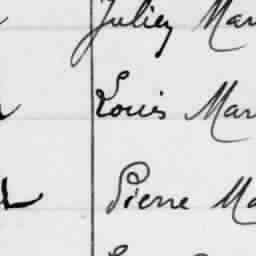 Julien Mar
Louis Mar
Pierre Ma